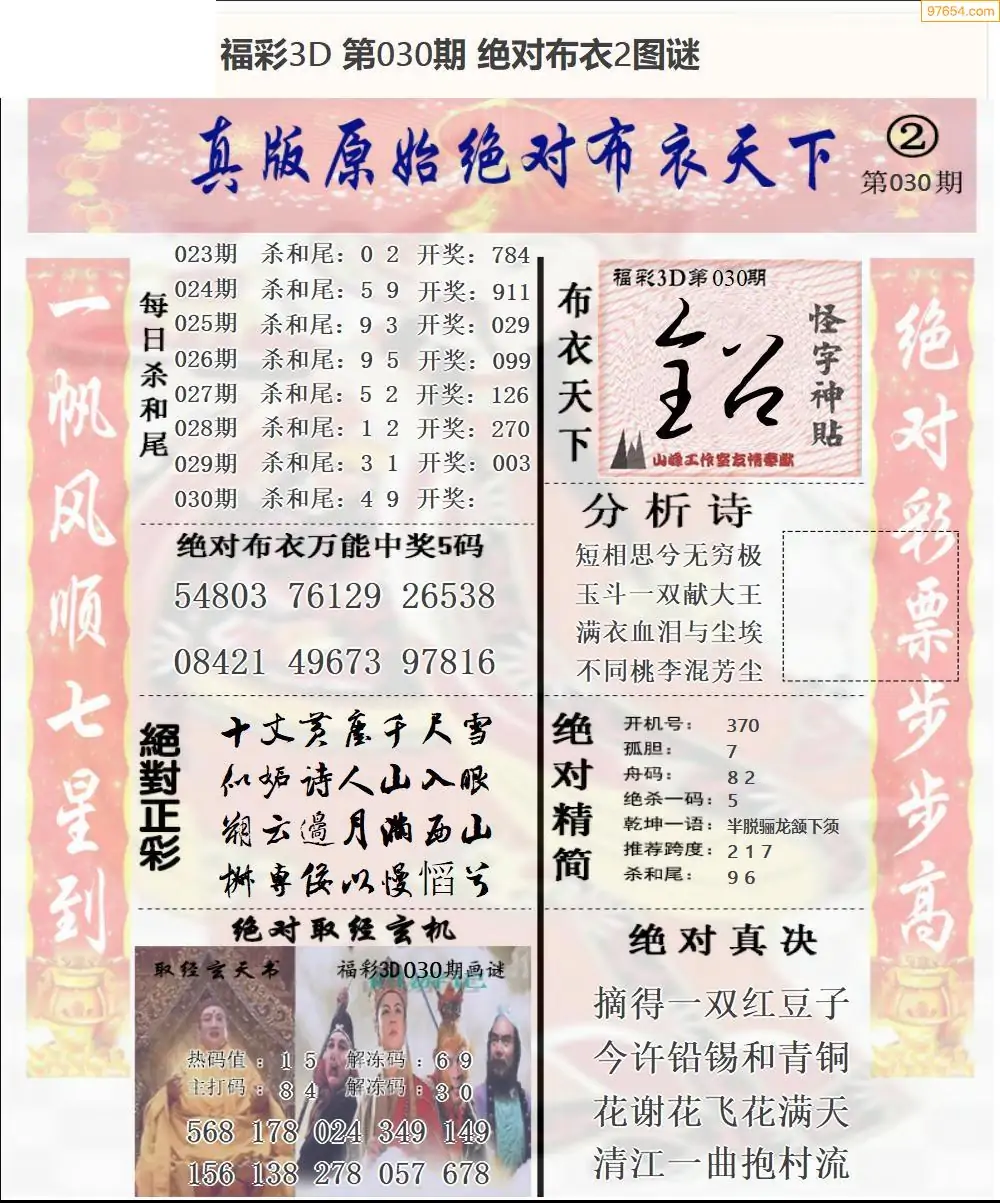 97654.com
福彩3D 第030期 绝对布衣2图谜
真版原始绝对布衣天下
②
第030期
一帆风顺七星到
每日杀和尾
023期 杀和尾：0 2 开奖：784
024期 杀和尾：5 9 开奖：911
025期 杀和尾：9 3 开奖：029
026期 杀和尾：9 5 开奖：099
027期 杀和尾：5 2 开奖：126
028期 杀和尾：1 2 开奖：270
029期 杀和尾：3 1 开奖：003
030期 杀和尾：4 9 开奖：
绝对布衣万能中奖5码
54803 76129 26538
08421 49673 97816
絕對正彩
十丈黄塵千尺雪
似妬诗人山入眼
朔云邊月满西山
樹専倿以慢慆兮
绝对取经玄机
取经玄天书
福彩3D030期画谜
热码值：1 5 解冻码：6 9
主打码：8 4 解冻码：3 0
568 178 024 349 149
156 138 278 057 678
布衣天下
福彩3D第030期
怪字神貼
山峰工作室友情奉献
分析诗
短相思兮无穷极
玉斗一双献大王
满衣血泪与尘埃
不同桃李混芳尘
绝对精简
开机号：370
孤胆：7
舟码：8 2
绝杀一码：5
乾坤一语：半脱骊龙颔下须
推荐跨度：2 1 7
杀和尾：9 6
绝对真决
摘得一双红豆子
今许铅锡和青铜
花谢花飞花满天
清江一曲抱村流
绝对彩票步步高